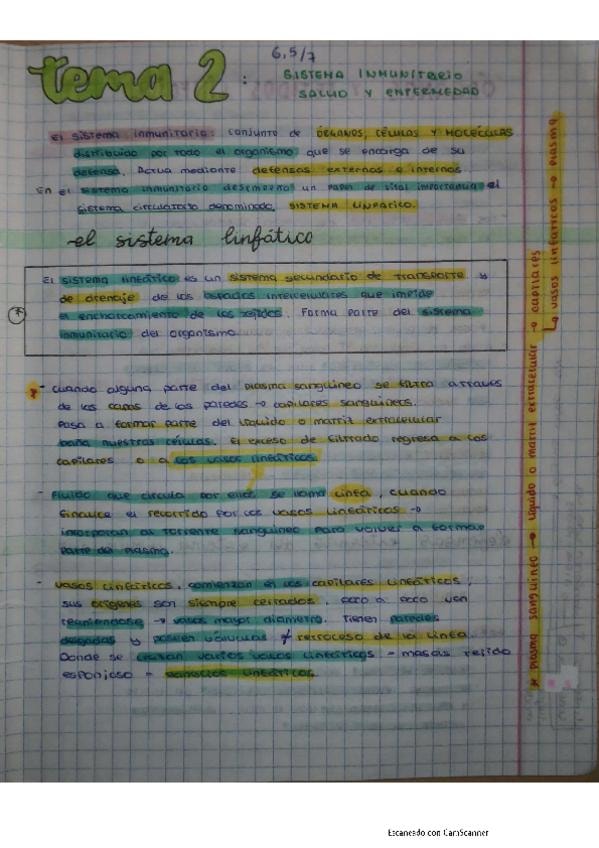 6,5/7
tema 2: SISTEMA INMUNITARIO
SALUD Y ENFERMEDAD
El sistema inmunitario: conjunto de ÓRGANOS, CÉLULAS Y MOLÉCULAS
distribuido por todo el organismo que se encarga de su
defensa. Actua mediante defensas externas o internas
En el sistema inmunitario desempeña un papel de vital importancia el
sistema circulatorio denominado, SISTEMA LINFÁTICO.
-el sistema linfático
El sistema linfático es un sistema secundario de transporte y
de drenaje de los espacios intercelulares que impide
el encharcamiento de los tejidos. Forma parte del sistema
inmunitario del organismo.
* - cuando alguna parte del plasma sanguineo se filtra a través
de las capas de las paredes → capilares sanguineos.
Pasa a formar parte del líquido o matriz extracelular
baña nuestras células. El exceso de filtrado regresa a los
capilares o a los vasos linfáticos
- Fluido que circula por ellos se llama linfa, cuando
finalice el recorrido por los vasos linfáticos →
incorporan al torrente sanguineo para volver a formar
parte del plasma.
- vasos linfáticos, comienzan en los capilares linfáticos,
sus orígenes son siempre cerrados, poco a poco van
reuniendose → vasos mayor diametro. Tienen paredes
delgadas y poseen válvulas retroceso de la linfa.
Donde se cruzan varios vasos linfáticos - masas tejido
esponjoso - ganglios linfáticos.
* plasma sanguineo → líquido o matriz extracelular → capilares
↳ vasos linfáticos → plasma
Escaneado con CamScanner